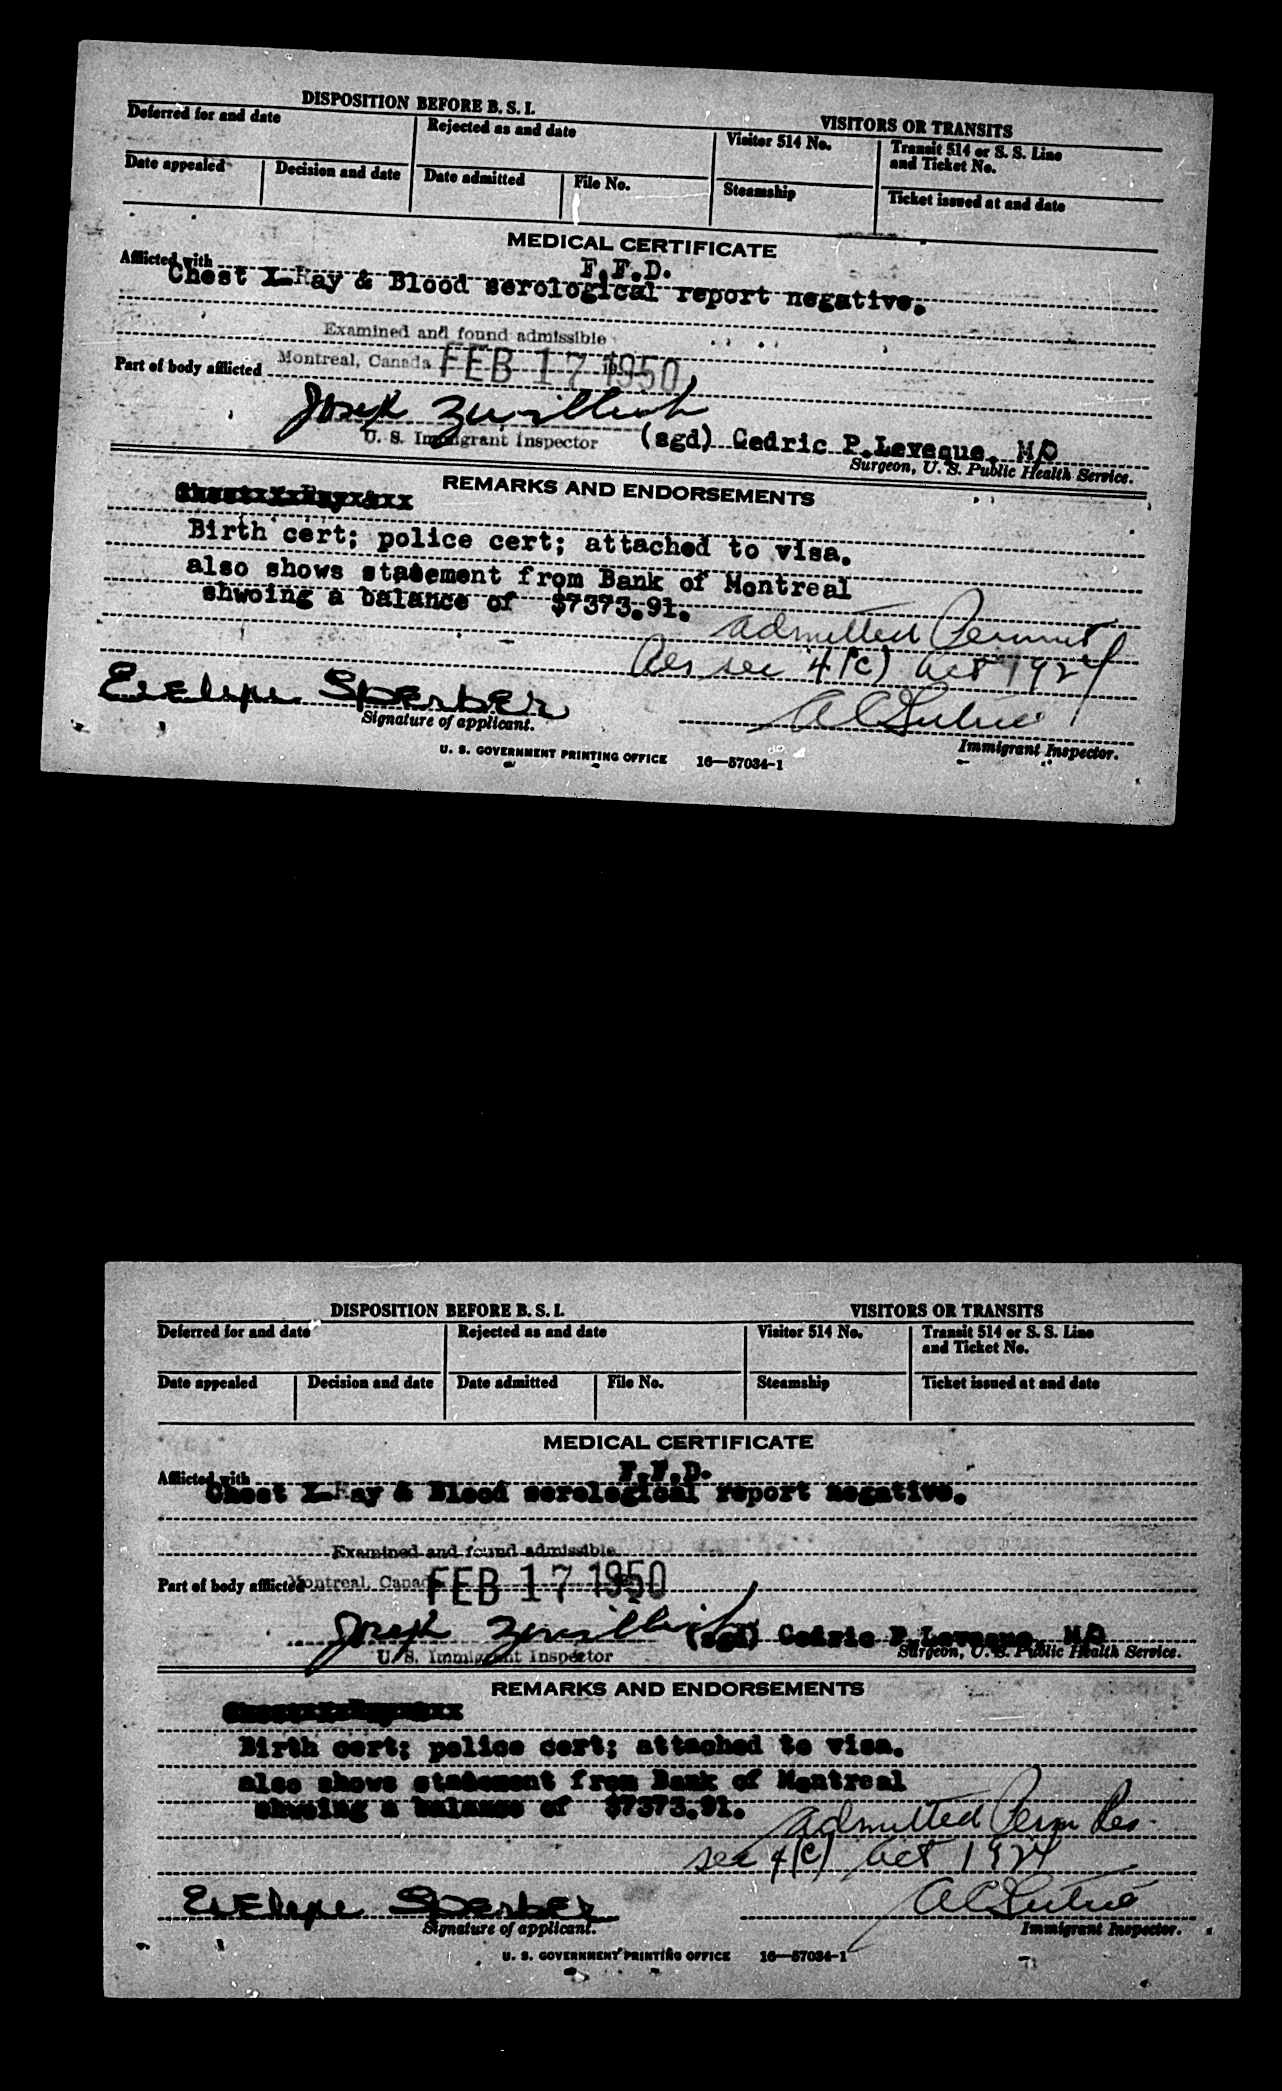 DISPOSITION BEFORE B. S. I.
VISITORS OR TRANSITS
Deferred for and date
Rejected as and date
Visitor 514 No.
Transit 514 or S. S. Line
and Ticket No.
Date appealed
Decision and date
Date admitted
File No.
Steamship
Ticket issued at and date
MEDICAL CERTIFICATE
F.F.D.
Afflicted with
Chest X-Ray & Blood serological report negative.
Examined and found admissible
Part of body afflicted
Montreal, Canada FEB 17 1950
Joseph
U. S. Immigrant Inspector
(sgd) Cedric P.Leveque, MD
Surgeon, U. S. Public Health Service.
REMARKS AND ENDORSEMENTS
Birth cert; police cert; attached to visa.
also shows statement from Bank of Montreal
shwoing a balance of $7373.91.
admitted Permnt
Res sec 4(c) Act 1924
Evelyne Sperber
Signature of applicant.
Immigrant Inspector.
U. S. GOVERNMENT PRINTING OFFICE 16—57034-1
DISPOSITION BEFORE B. S. I.
VISITORS OR TRANSITS
Deferred for and date
Rejected as and date
Visitor 514 No.
Transit 514 or S. S. Line
and Ticket No.
Date appealed
Decision and date
Date admitted
File No.
Steamship
Ticket issued at and date
MEDICAL CERTIFICATE
F.F.D.
Afflicted with
Chest X-Ray & Blood serological report negative.
Examined and found admissible
Part of body afflicted
Montreal, Canada FEB 17 1950
Joseph
U. S. Immigrant Inspector
(sgd) Cedric P.Leveque, MD
Surgeon, U. S. Public Health Service.
REMARKS AND ENDORSEMENTS
Birth cert; police cert; attached to visa.
also shows statement from Bank of Montreal
shwoing a balance of $7373.91.
admitted Perm Res.
sec 4(c) Act 1924
Evelyne Sperber
Signature of applicant.
Immigrant Inspector.
U. S. GOVERNMENT PRINTING OFFICE 16—57034-1